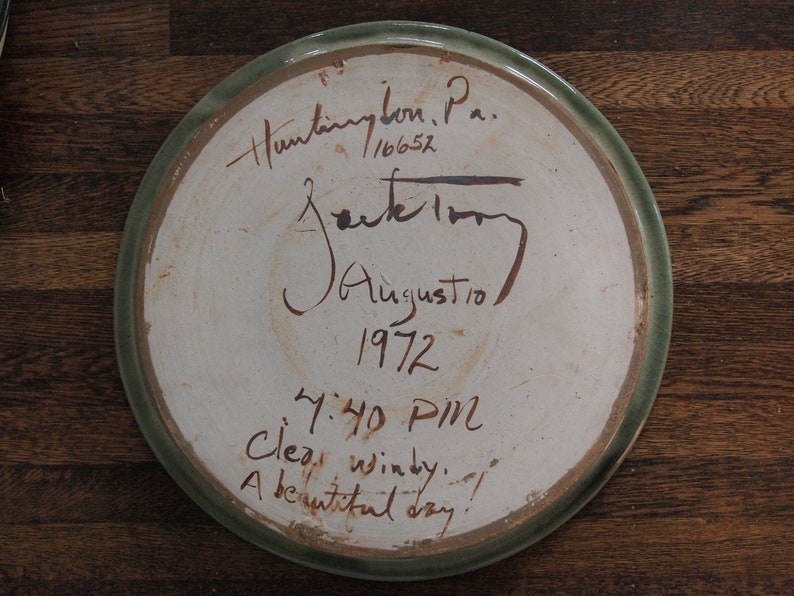 Huntingdon, Pa.
16652
Jack Troy
August 10
1972
4:40 PM
Clear windy.
A beautiful day!